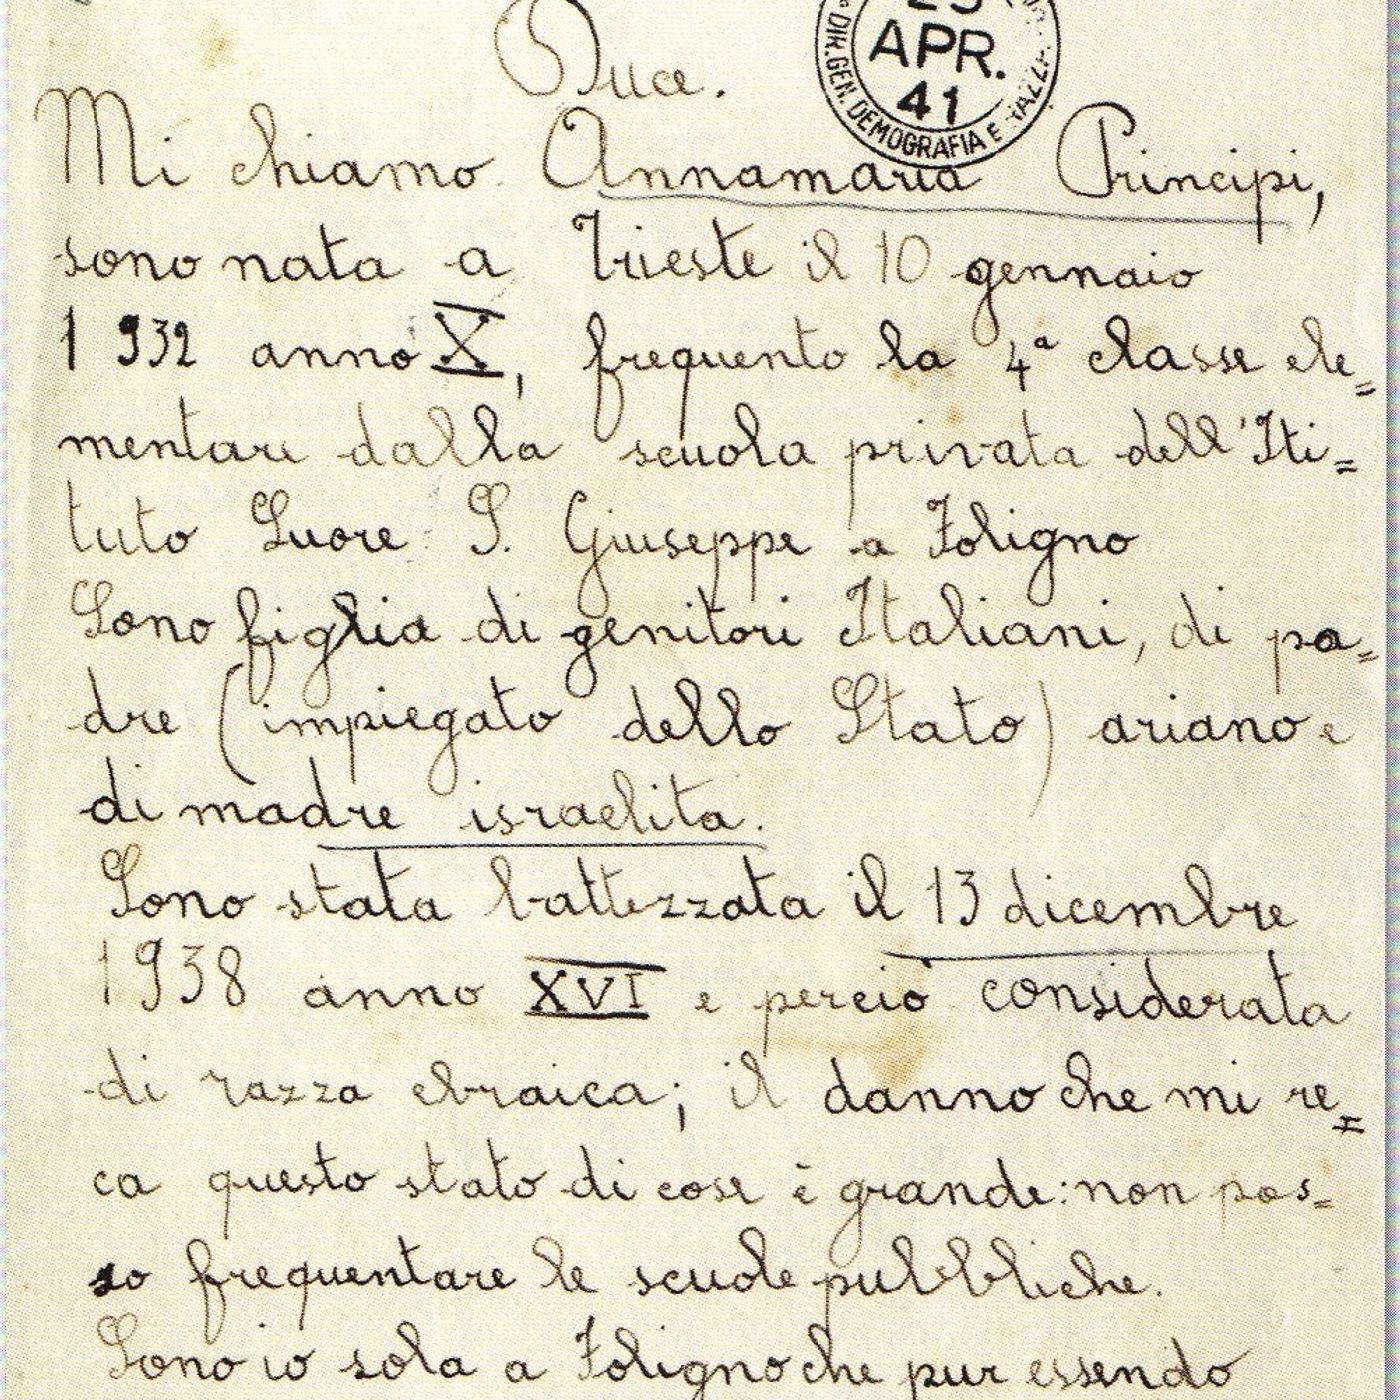 Duce.
25
APR.
41
DIR. GEN. DEMOGRAFIA E RAZZA
Mi chiamo Annamaria Principi,
sono nata a Trieste il 10 gennaio
1932 anno X, frequento la 4ª classe ele=
mentare dalla scuola privata dell'Iti=
tuto Suore S. Giuseppe a Foligno
Sono figlia di genitori Italiani, di pa=
dre (impiegato dello Stato) ariano e
di madre israelita.
Sono stata battezzata il 13 dicembre
1938 anno XVI e perciò considerata
di razza ebraica; il danno che mi re=
ca questo stato di cose è grande: non pos=
so frequentare le scuole pubbliche.
Sono io sola a Foligno che pur essendo